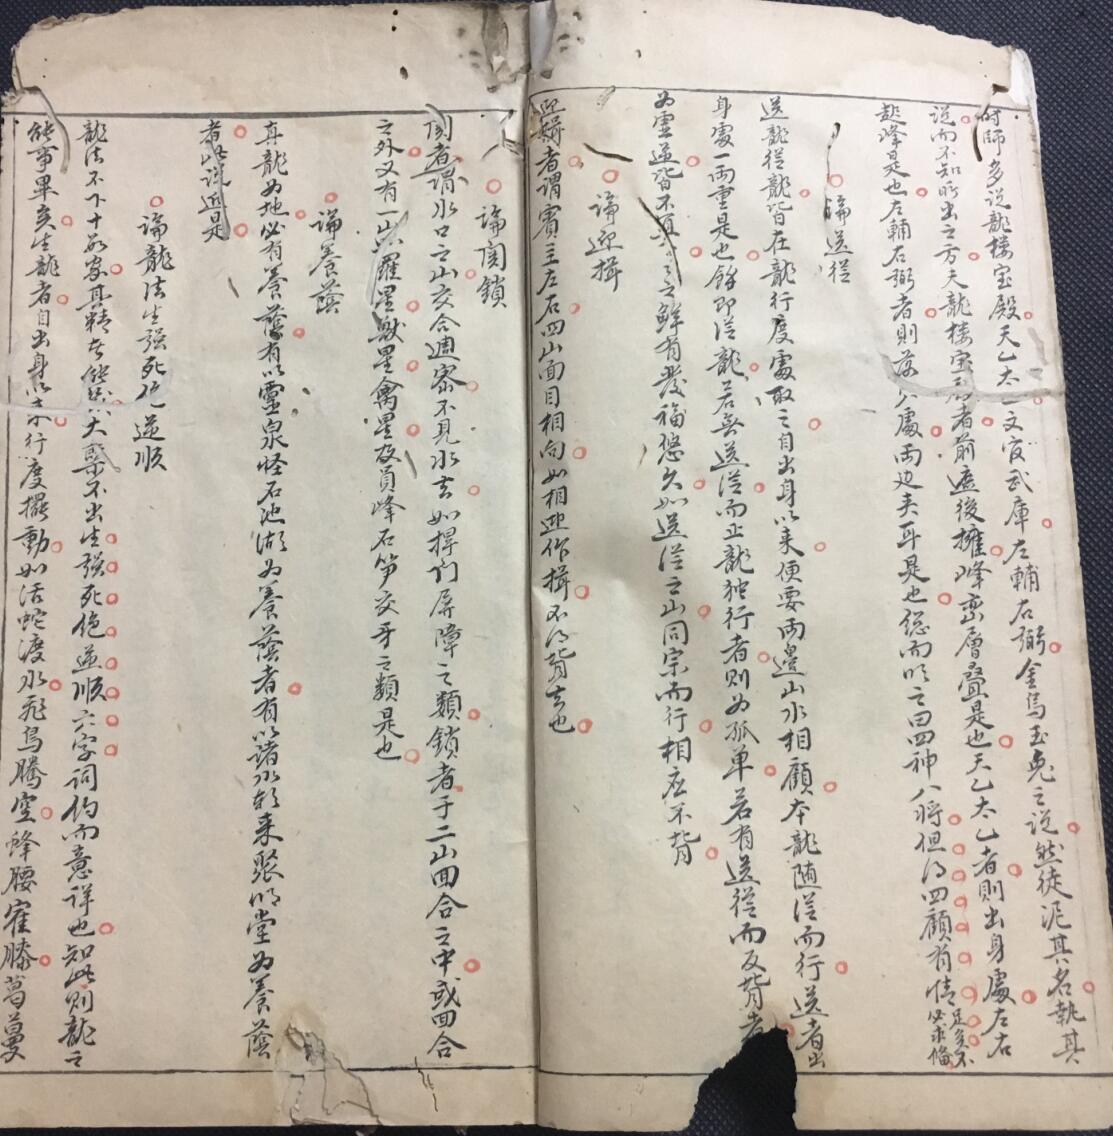 時師多説龍楼宝殿天乙太乙文官武庫左輔右弼金烏玉兔之说然徒泥其名執其
说而不知所出之方夫龍楼宝殿者前遮後擁峰巒層叠是也天乙太乙者則出身處左右
峰是也左輔右弼者則落穴處両边夹耳是也総而心之曰四神八將但得四顧有情足矣不必求偹
論送從
送龍從龍皆在龍行度處取之自出身以来便要両邉山水相顧本龍随從而行送者出
身處一両重是也餘即從龍若無送從而止龍独行者則为孤单若有送從而反背者
为虚送皆不真之鲜有发福悠久如送從之山同宗而行相应不背
論迎揖
迎揖者谓賓主左右四山面目相向如相迎作揖不得背去也
論関鎖
関者谓水口之山交合週宻不见水去如捍门屏障之類鎖者于二山囬合之中或囬合
之外又有一山羅星獸星禽星及員峰石笋交牙之類是也
論養蔭
真龍为地必有養蔭有以靈泉怪石池湖为養蔭者有以諸水朝来聚明堂为養蔭
者此说近是
論龍法生强死绝逆顺
龍法不下十数家其精者大槩不出生强死绝逆顺六字词约而意详也知此则龍之
能事畢矣生龍者自出身以来行度擺動如活蛇渡水飛鳥騰空蜂腰寉膝葛蔓